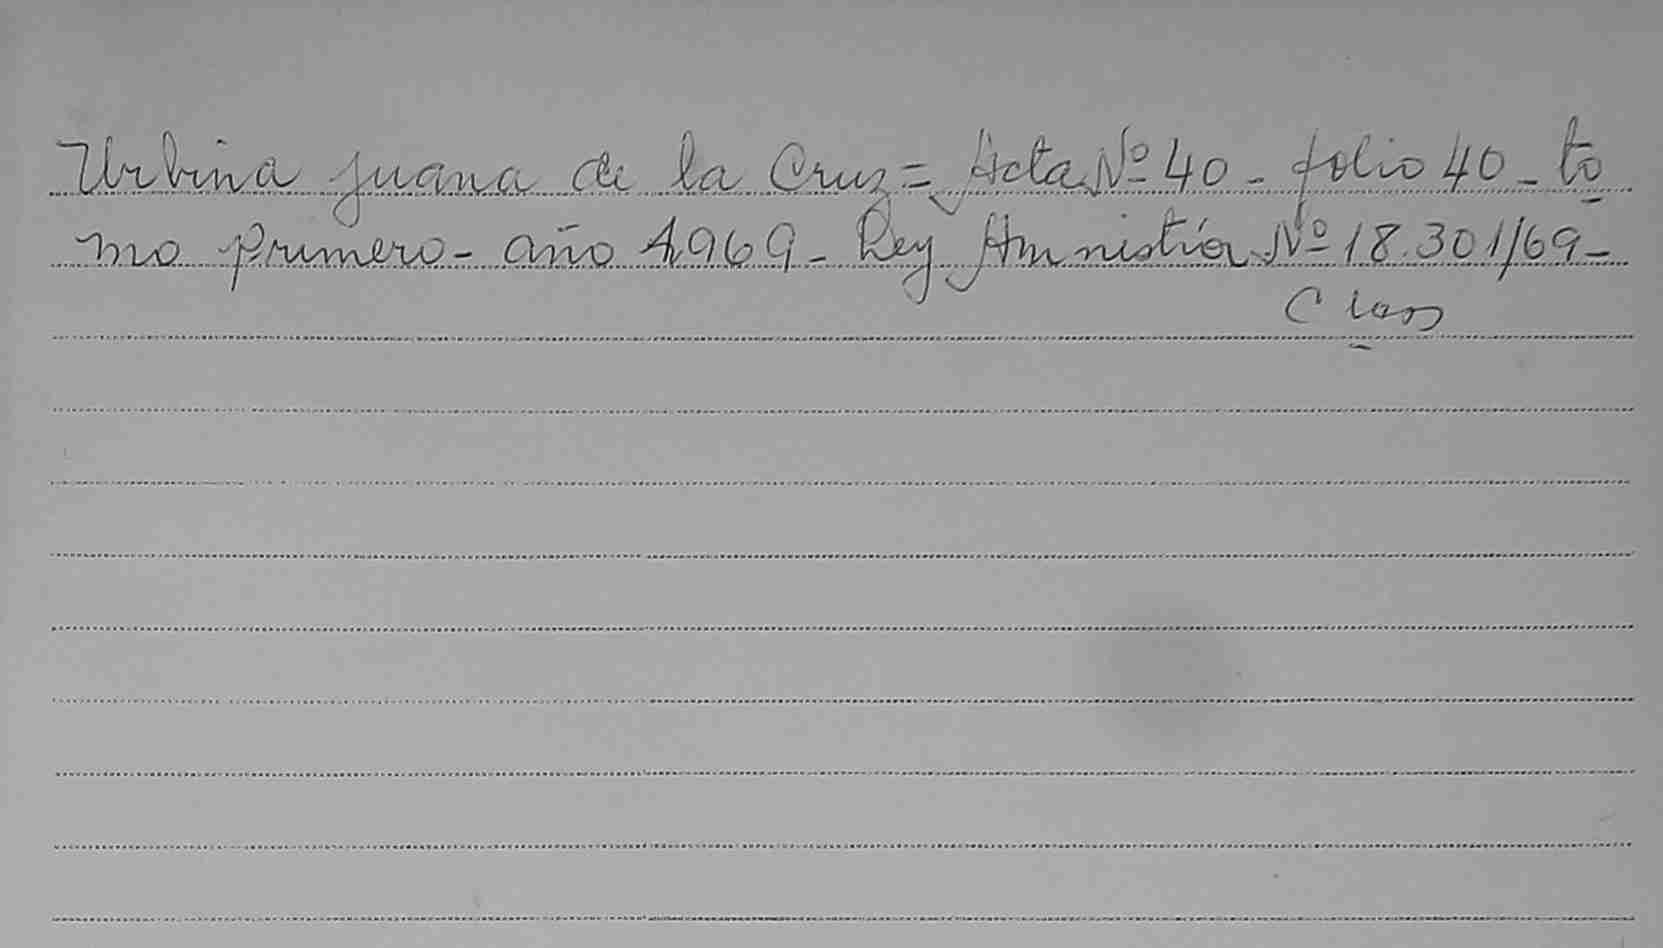 Urbina Juana de la Cruz = Acta Nº 40 - folio 40 - to
mo primero - año 1969 - Ley Amnistía Nº 18.301/69 -